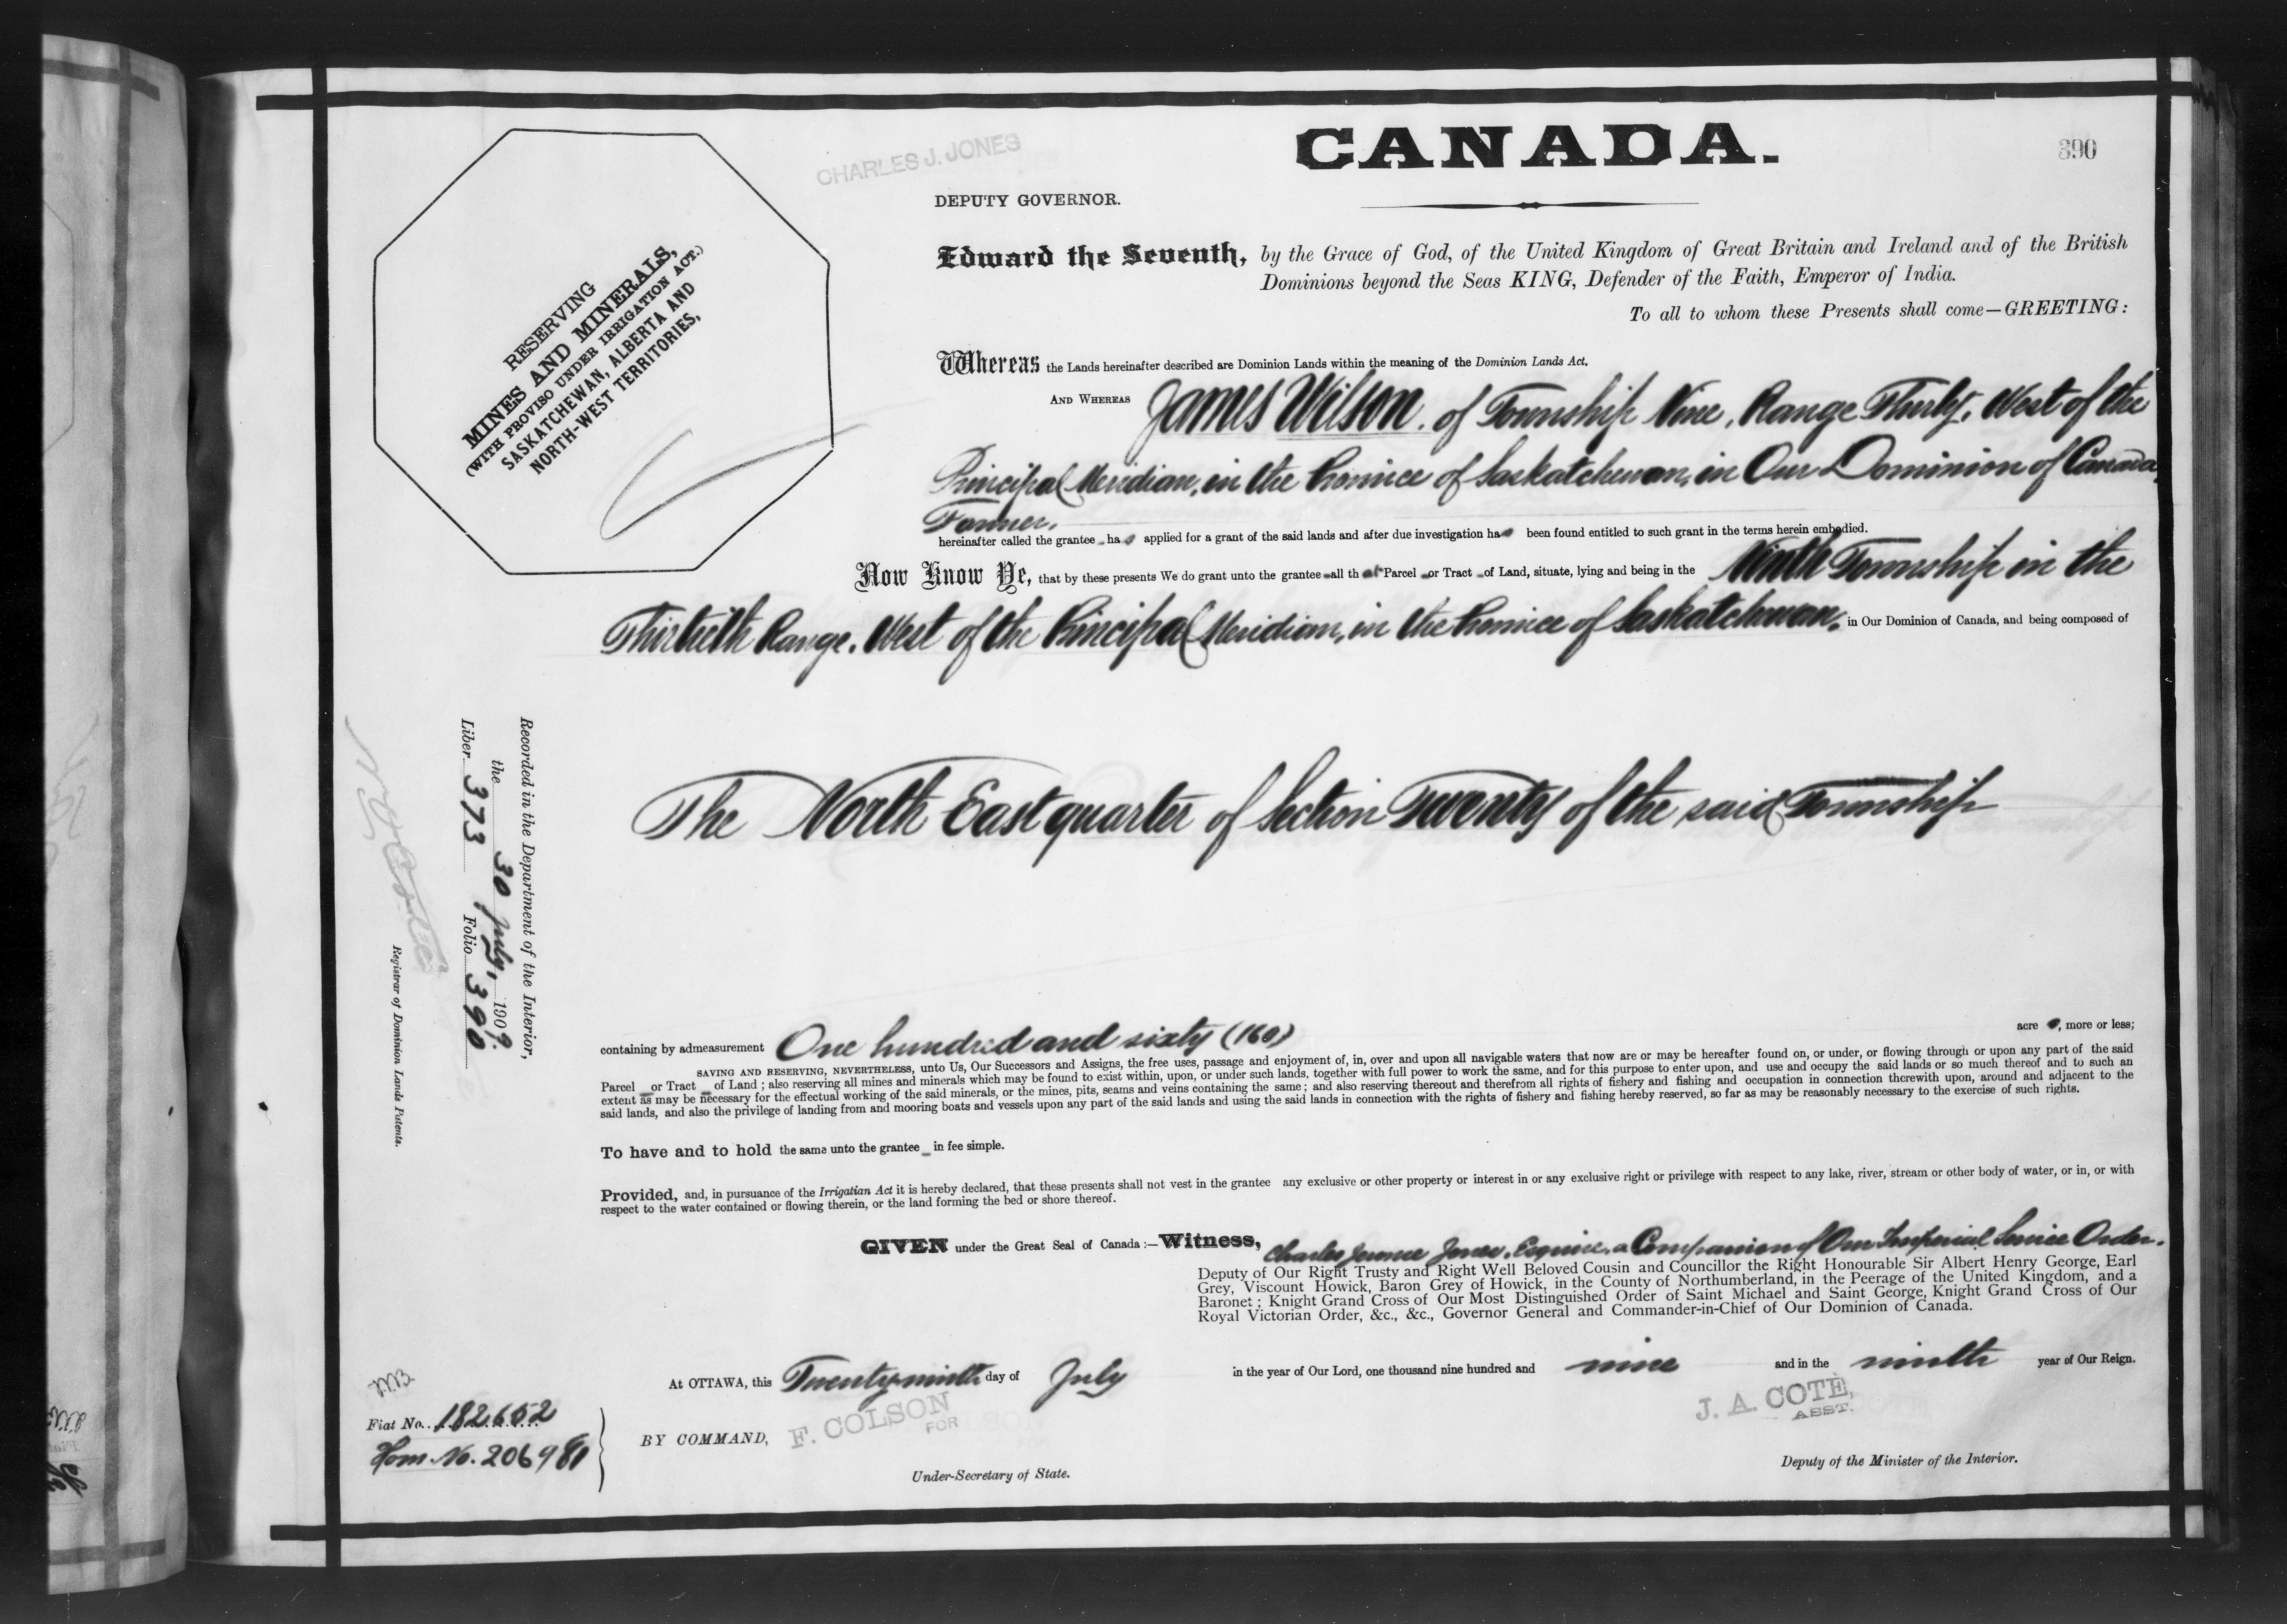 CANADA.
390
CHARLES J. JONES
DEPUTY GOVERNOR.
RESERVING
MINES AND MINERALS,
(WITH PROVISO UNDER IRRIGATION ACT.)
SASKATCHEWAN, ALBERTA AND
NORTH-WEST TERRITORIES,
Edward the Seventh, by the Grace of God, of the United Kingdom of Great Britain and Ireland and of the British
Dominions beyond the Seas KING, Defender of the Faith, Emperor of India.
To all to whom these Presents shall come—GREETING:
Whereas the Lands hereinafter described are Dominion Lands within the meaning of the Dominion Lands Act.
AND WHEREAS James Wilson, of Township Nine, Range Thirty, West of the
Principal Meridian, in the Province of Saskatchewan, in Our Dominion of Canada,
Farmer,
hereinafter called the grantee has applied for a grant of the said lands and after due investigation has been found entitled to such grant in the terms herein embodied.
Now Know Ye, that by these presents We do grant unto the grantee all that Parcel or Tract of Land, situate, lying and being in the Ninth Township in the
Thirtieth Range, West of the Principal Meridian, in the Province of Saskatchewan, in Our Dominion of Canada, and being composed of
The North East quarter of Section Twenty of the said Township
containing by admeasurement One hundred and sixty (160) acres, more or less;
SAVING AND RESERVING, NEVERTHELESS, unto Us, Our Successors and Assigns, the free uses, passage and enjoyment of, in, over and upon all navigable waters that now are or may be hereafter found on, or under, or flowing through or upon any part of the said
Parcel or Tract of Land; also reserving all mines and minerals which may be found to exist within, upon, or under such lands, together with full power to work the same, and for this purpose to enter upon, and use and occupy the said lands or so much thereof and to such an
extent as may be necessary for the effectual working of the said minerals, or the mines, pits, seams and veins containing the same; and also reserving thereout and therefrom all rights of fishery and fishing and occupation in connection therewith upon, around and adjacent to the
said lands, and also the privilege of landing from and mooring boats and vessels upon any part of the said lands and using the said lands in connection with the rights of fishery and fishing hereby reserved, so far as may be reasonably necessary to the exercise of such rights.
To have and to hold the same unto the grantee in fee simple.
Provided, and, in pursuance of the Irrigatian Act it is hereby declared, that these presents shall not vest in the grantee any exclusive or other property or interest in or any exclusive right or privilege with respect to any lake, river, stream or other body of water, or in, or with
respect to the water contained or flowing therein, or the land forming the bed or shore thereof.
GIVEN under the Great Seal of Canada:—Witness, Charles Jerome Jones, Esquire, a Companion of Our Imperial Service Order.
Deputy of Our Right Trusty and Right Well Beloved Cousin and Councillor the Right Honourable Sir Albert Henry George, Earl
Grey, Viscount Howick, Baron Grey of Howick, in the County of Northumberland, in the Peerage of the United Kingdom, and a
Baronet; Knight Grand Cross of Our Most Distinguished Order of Saint Michael and Saint George, Knight Grand Cross of Our
Royal Victorian Order, &c., &c., Governor General and Commander-in-Chief of Our Dominion of Canada.
At OTTAWA, this Twenty-ninth day of July in the year of Our Lord, one thousand nine hundred and nine and in the ninth year of Our Reign.
Fiat No. 182652
Hom. No. 206981
BY COMMAND, F. COLSON
FOR
Under-Secretary of State.
J. A. COTE,
ASST.
Deputy of the Minister of the Interior.
Recorded in the Department of the Interior,
the 30 July, 1909.
Liber 373 Folio 390
Registrar of Dominion Lands Patents.